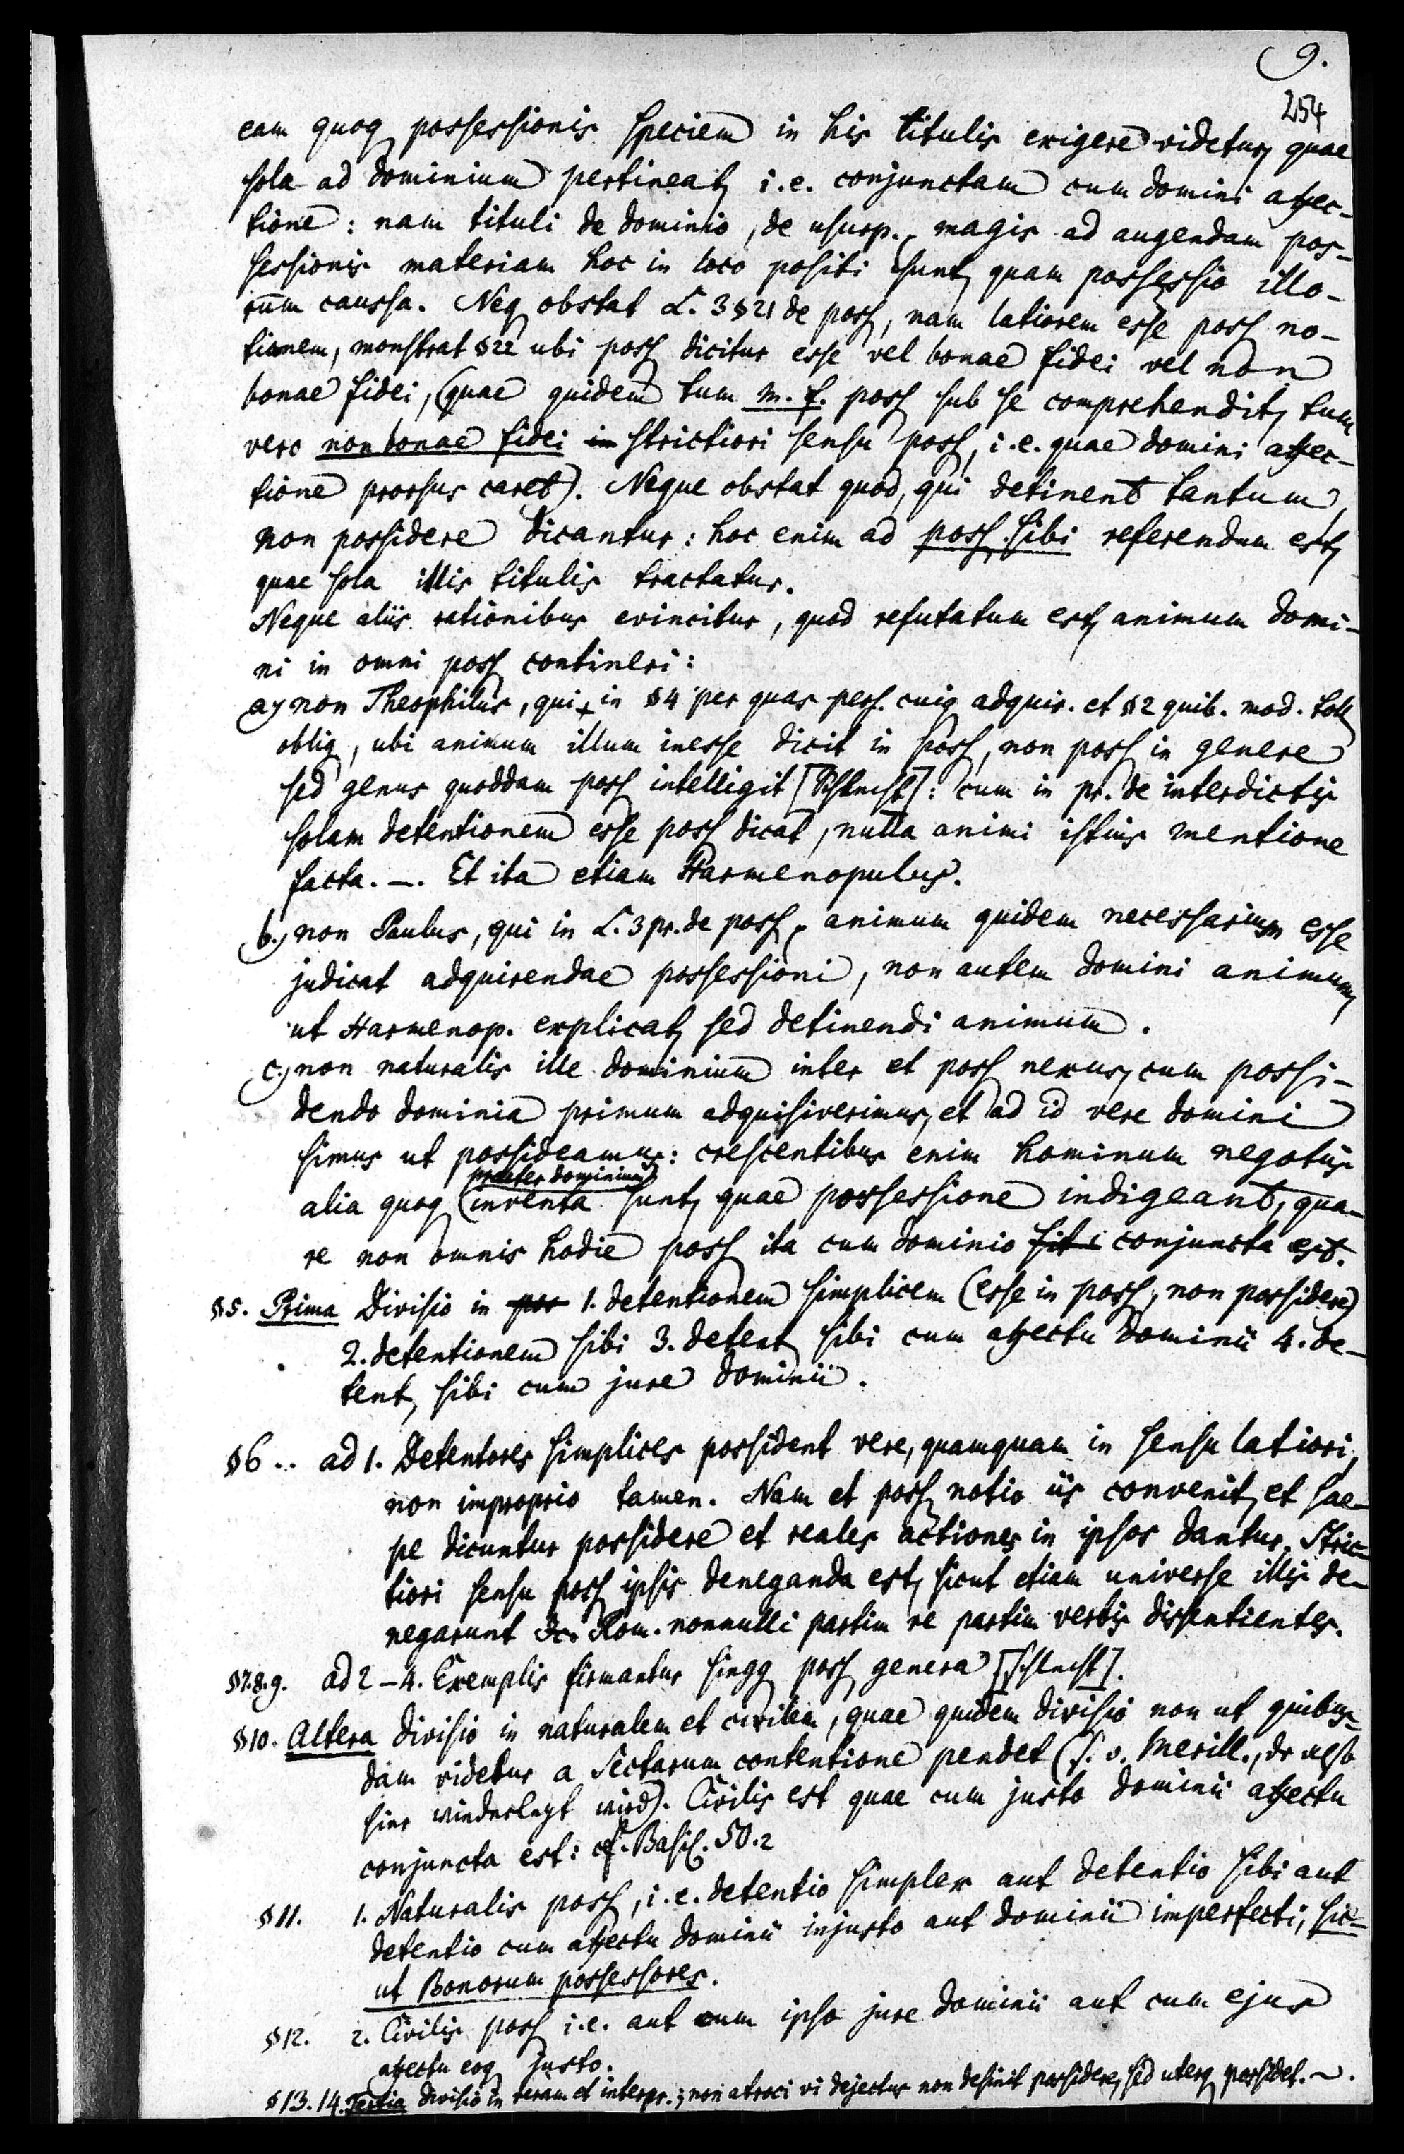 9.
254
eam quoq possessionis speciem in his titulis exigere videtur, quae
sola ad dominium pertineat, i.e. conjunctam cum domini affec-
tione: nam tituli de dominio, de usurp., magis ad augendam pos-
sessionis materiam hoc in loco positi sunt, quam possessio illo-
rum caussa. Neq obstat L. 3 § 21 de poss, nam latiorem esse poss no-
tionem, monstrat § 22 ubi poss dicitur esse vel bonae fidei vel non
bonae fidei, (quae quidem tum m. f. poss sub se comprehendit, tum
vero non bonae fidei in strictiori sensu poss, i.e. quae domini affec-
tione prorsus caret). Neque obstat quod, qui detinent tantum,
non possidere dicantur: hoc enim ad poss. sibi referendum est,
quae sola illis titulis tractatur.
Neque aliis rationibus evincitur, quod refutatum est, animum domi-
ni in omni poss contineri:
a) non Theophilus, qui in § 4 per quas pers. cuiq adquir. et § 2 quib. mod. toll
oblig, ubi animum illum inesse dicit in poss, non poss in genere
sed genus quoddam poss intelligit [Schlecht]: cum in pr. de interdictis
solam detentionem esse poss dicat, nulla animi istius mentione
facta. —. Et ita etiam Harmenopulus.
b.) non Paulus, qui in L. 3 pr. de poss, animum quidem necessarium esse
judicat adquirendae possessioni, non autem domini animum,
ut Harmenop. explicat, sed detinendi animum.
c.) non naturalis ille dominium inter et poss nexus, cum possi-
dendo dominia primum adquisiverimus, et ad id vere domini
simus ut possideamus: crescentibus enim hominum negotiis
praeter dominium
alia quoq (inventa sunt, quae possessione indigeant, qua-
re non omnis hodie poss ita cum dominio conjuncta est.
§5. Prima Divisio in pos 1. detentionem simplicem (esse in poss, non possidere)
2. detentionem sibi 3. detent, sibi cum affectu dominii 4. de-
tent, sibi cum jure dominii.
§6.. ad 1. Detentores simplices possident vere, quamquam in sensu latiori,
non improprio tamen. Nam et poss notio iis convenit, et sae-
pe dicuntur possidere et reales actiones in ipsos dantur. Stric-
tiori sensu poss ipsis deneganda est, sicut etiam universe illis de-
negarunt Jc. Rom. nonnulli partim re partim verbis dissentientes.
§7.8.9. ad 2–4. Exemplis firmantur singg poss genera [Schlecht].
§10. Altera divisio in naturalem et civilem, quae quidem divisio non ut quibus-
dam videtur a sectarum contentione pendet (s. v. Merill., dr
hier wiederlegt wird). Civilis est quae cum justo dominii affectu
conjuncta est: cf. Basil. 50.2
§11. 1. Naturalis poss, i.e. detentio simplex aut detentio sibi aut
detentio cum affectu dominii injusto aut dominii imperfecti, sic-
ut Bonorum possessores.
§12. 2. Civilis poss i.e. aut cum ipso jure dominii aut cum ejus
affectu eoq justo.
§13.14. Tertia divisio in veram et interpr.; non atroci vi dejectus non desinit possidere, sed uterq possidet. ~.